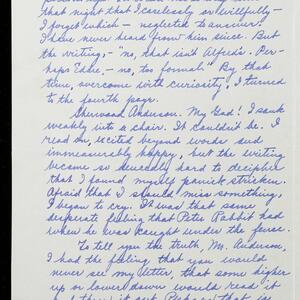 that night that I carelessly or willfully –
I forget which – neglected to answer!
I have never heard from him since. But
the writing, – "no, that isn't Alfred's. Per-
haps Edue, – no, too formal." By that
time, overcome with curiosity, I turned
to the fourth page.
Sherwood Anderson. My God! I sank
weakly into a chair. It couldn't be. I
read on, excited beyond words and
immeasurably happy, but the writing
became so unusually hard to decipher
that I found myself panick stricken.
Afraid that I should miss something,
I began to cry. It was that same
desperate feeling that Peter Rabbit had
when he was caught under the fence.
To tell you the truth, Mr. Anderson,
I had the feeling that you would
never see my letter, that some higher
up or lower down would read it